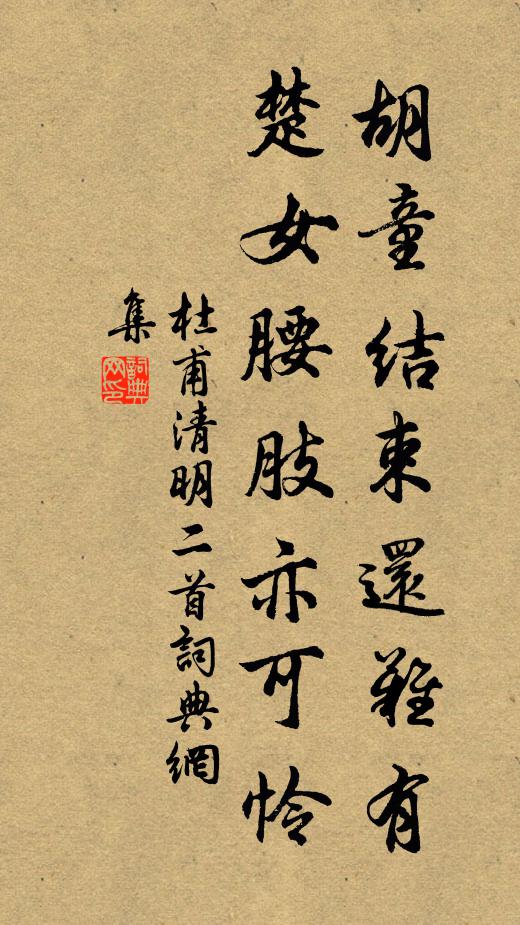 胡童結束還難有
楚女腰肢亦可怜
杜甫清明二首詞典網
集
詞典
网印